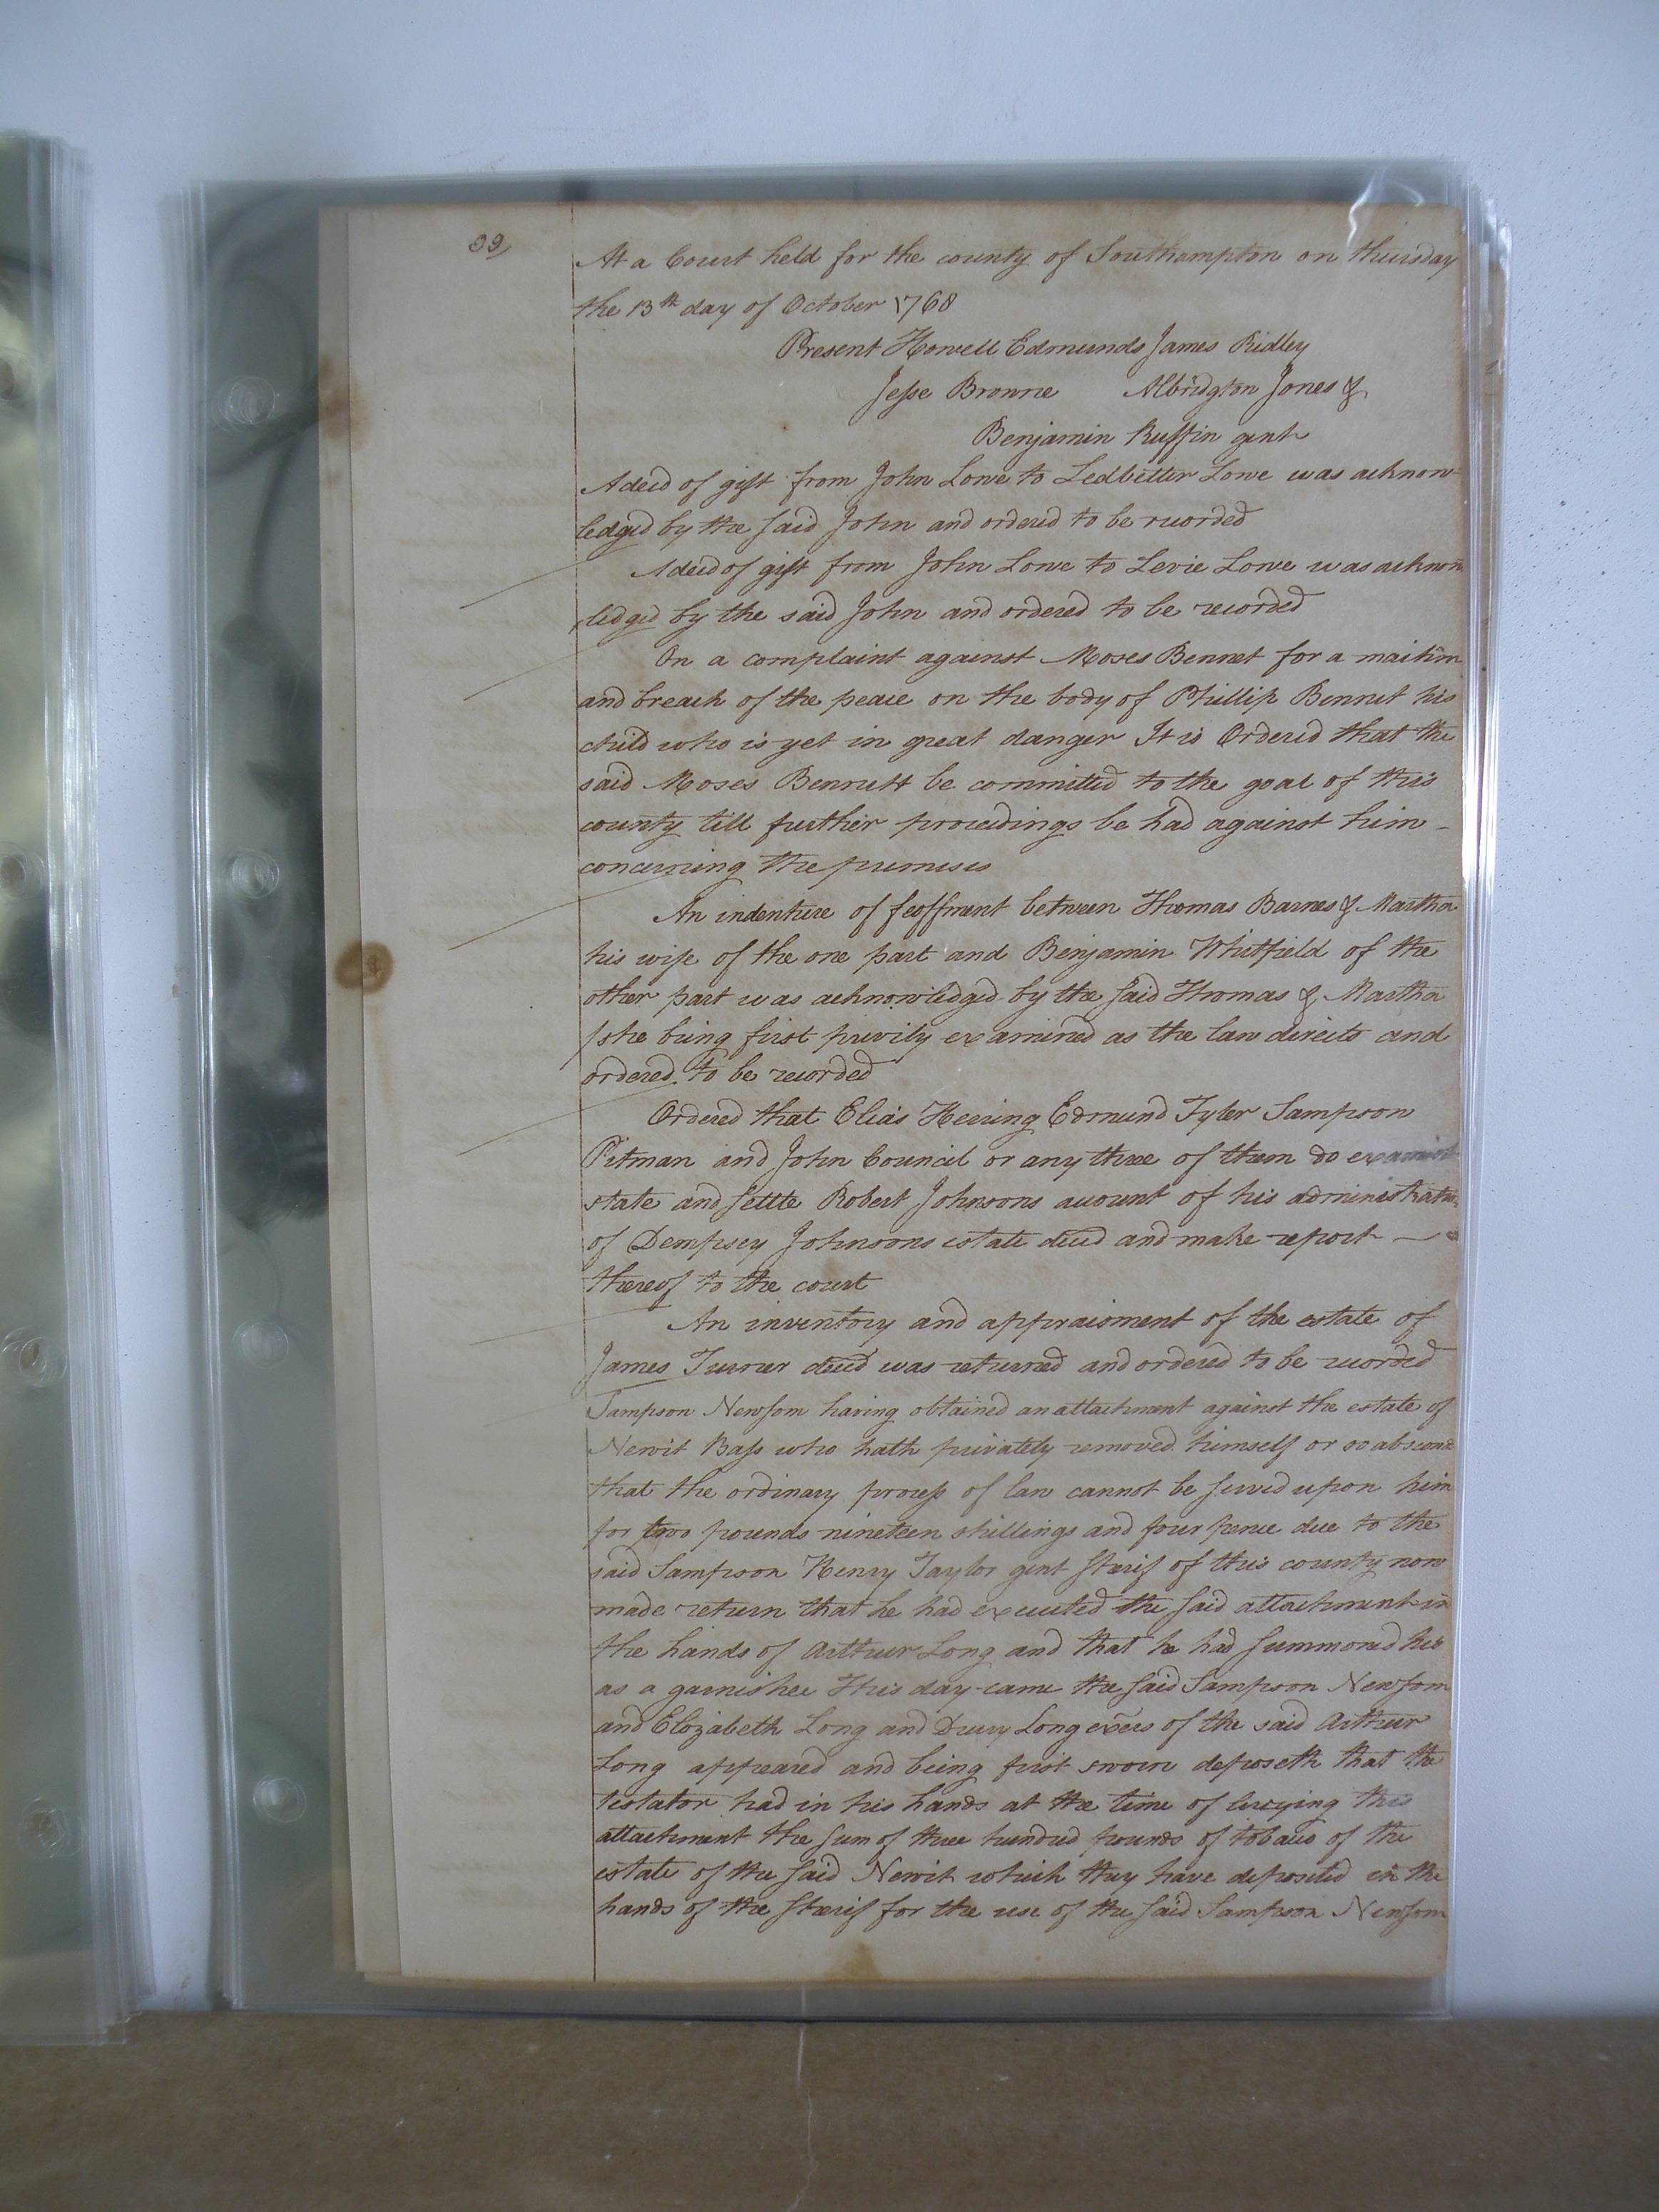 39,
At a Court held for the county of Southampton on thursday
the 13th day of October 1768
Present Howell Edmunds James Ridley
Jesse Browne Albridgton Jones &
Benjamin Ruffin gent
A deed of gift from John Lowe to Ledbetter Lowe was acknow-
ledged by the said John and ordered to be recorded
A deed of gift from John Lowe to Levie Lowe was acknow
ledged by the said John and ordered to be recorded
On a complaint against Moses Bennet for a maihim
and breach of the peace on the body of Phillip Bennet his
child who is yet in great danger It is Ordered that the
said Moses Bennett be committed to the goal of this
county till further proceedings be had against him -
concerning the premises
An indenture of feoffment between Thomas Barnes & Martha
his wife of the one part and Benjamin Whitfield of the
other part was acknowledged by the said Thomas & Martha
/she being first privily examined as the law directs and
ordered to be recorded
Ordered that Elias Herring Edmund Tyler Sampson
Pitman and John Council or any three of them do examine
state and settle Robert Johnsons account of his administratn
of Dempsey Johnsons estate deced and make report —
thereof to the court
An inventory and appraisment of the estate of
James Turner deced was returned and ordered to be recorded
Sampson Newsom having obtained an attachment against the estate of
Newit Bass who hath privately removed himself or so absconds
that the ordinary process of law cannot be served upon him
for two pounds nineteen shillings and four pence due to the
said Sampson Henry Taylor gent Sherif of this county now
made return that he had executed the said attachment in
the hands of Arthur Long and that he had summoned him
as a garnishee This day came the said Sampson Newsom
and Elozabeth Long and Drury Long exers of the said Arthur
Long appeared and being first sworn deposeth that the
testator had in his hands at the time of levying this
attachment the sum of three hundred pounds of tobacco of the
estate of the said Newit which they have deposited in the
hands of the Sherif for the use of the said Sampson Newsom